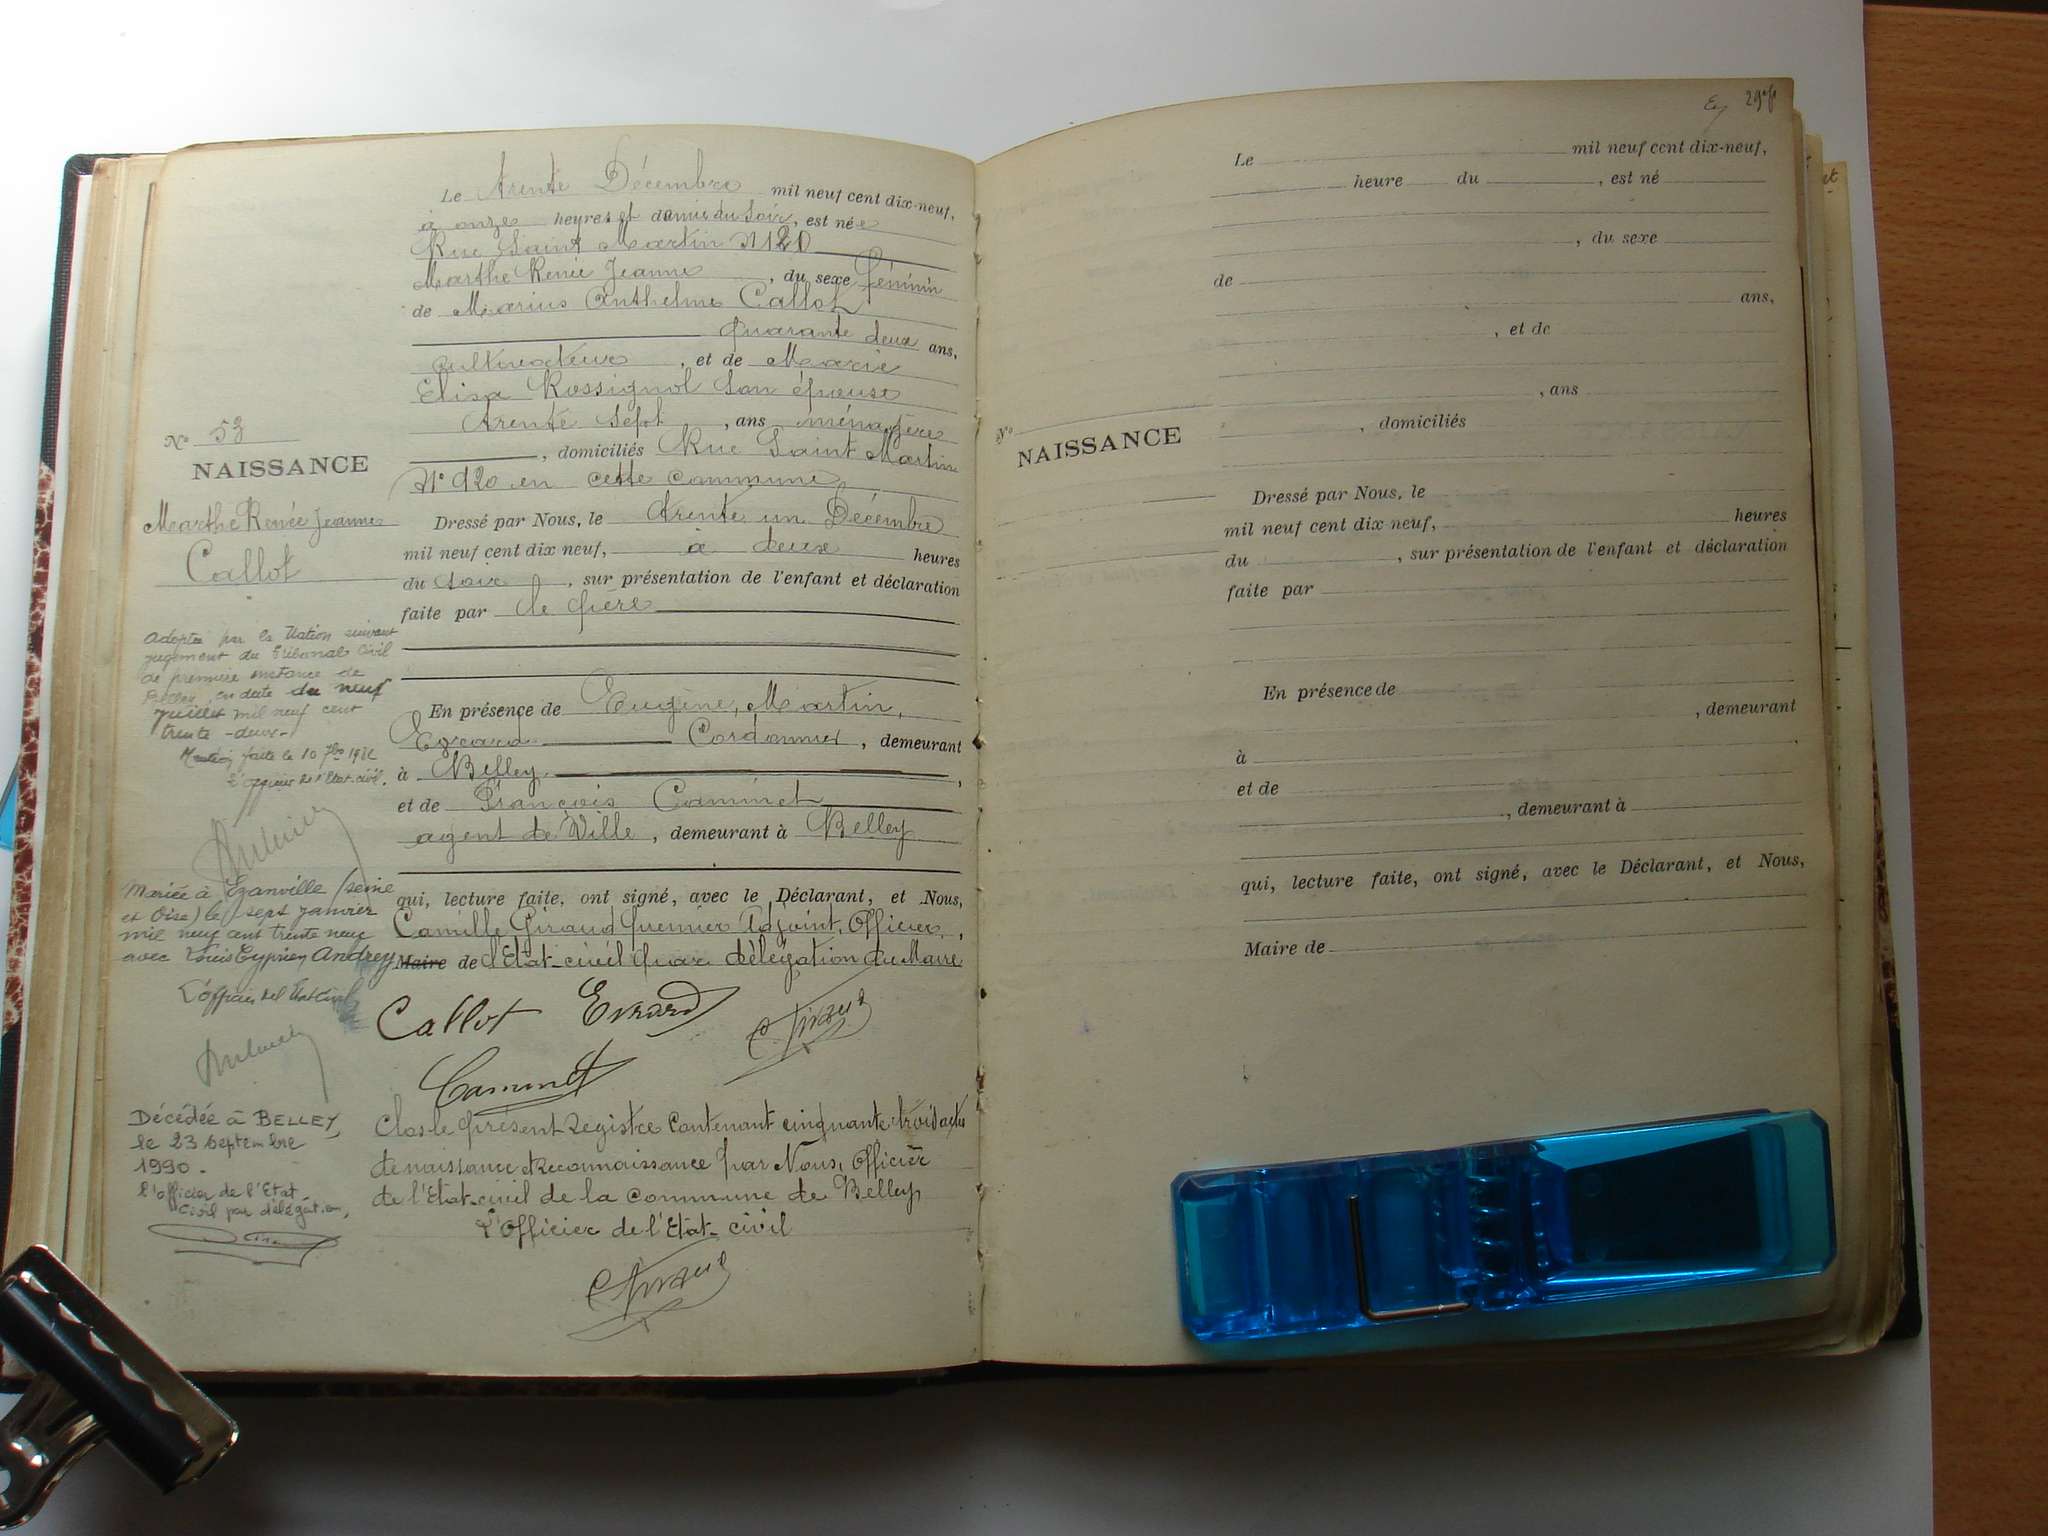 Le trente Décembre mil neuf cent dix-neuf,
à onze heures et demie du soir, est née
Rue Saint Martin N° 120
Marthe Renée Jeanne, du sexe féminin
de Marius Anthelme Callot
quarante deux ans,
cultivateur, et de Marie
Elisa Rossignol son épouse
trente sept, ans ménagère
, domiciliés Rue Saint Martin
N° 120 en cette commune
N° 53
NAISSANCE
Marthe Renée Jeanne
Callot
Dressé par Nous, le trente un Décembre
mil neuf cent dix neuf, à deux heures
du soir, sur présentation de l'enfant et déclaration
faite par le père
En présence de Eugène, Martin,
Evrard Cordonnier, demeurant
à Belley,
et de François Camminet
agent de Ville, demeurant à Belley
qui, lecture faite, ont signé, avec le Déclarant, et Nous,
Camille Giraud premier Adjoint, Officier,
Maire de l'Etat-civil par délégation du Maire
Callot Evrard C. Giraud
Camminet
Clos le présent registre contenant cinquante trois actes
de naissance et Reconnaissance par Nous, Officier
de l'Etat-civil de la commune de Belley
L'Officier de l'Etat-civil
C. Giraud
Adoptée par la Nation suivant
jugement du Tribunal Civil
de première instance de
Belley, en date du neuf
juillet mil neuf cent
trente-deux-
Mention faite le 10 7bre 1932
L'officier de l'Etat-civil.
Mariée à Ezanville (Seine
et Oise) le sept janvier
mil neuf cent trente neuf
avec Louis Cyprien Andrey
L'officier de l'Etat Civil
Décédée à BELLEY,
le 23 Septembre
1990.
L'officier de l'Etat
Civil par délégation,
29
Le mil neuf cent dix-neuf,
heure du , est né
, du sexe
de
ans,
, et de
, ans
, domiciliés
N°
NAISSANCE
Dressé par Nous, le
mil neuf cent dix neuf, heures
du , sur présentation de l'enfant et déclaration
faite par
En présence de
, demeurant
à
et de
, demeurant à
qui, lecture faite, ont signé, avec le Déclarant, et Nous,
Maire de